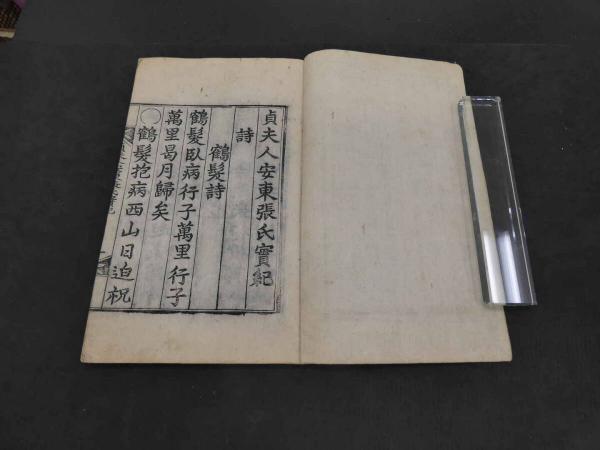 貞夫人安東張氏實紀
詩
鶴髮詩
鶴髮臥病行子萬里行子
萬里曷月歸矣
○鶴髮抱病西山日迫祝